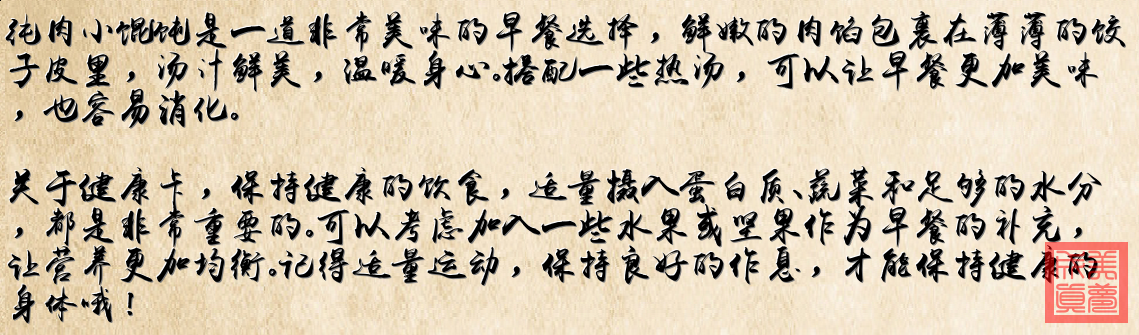 纯肉小馄饨是一道非常美味的早餐选择，鲜嫩的肉馅包裹在薄薄的饺
子皮里，汤汁鲜美，温暖身心。搭配一些热汤，可以让早餐更加美味
，也容易消化。
关于健康卡，保持健康的饮食，适量摄入蛋白质、蔬菜和足够的水分
，都是非常重要的。可以考虑加入一些水果或坚果作为早餐的补充，
让营养更加均衡。记得适量运动，保持良好的作息，才能保持健康的
身体哦！